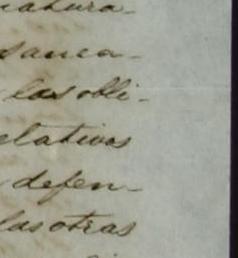 natura-
sanea-
las obli-
relativos
defen-
las otras